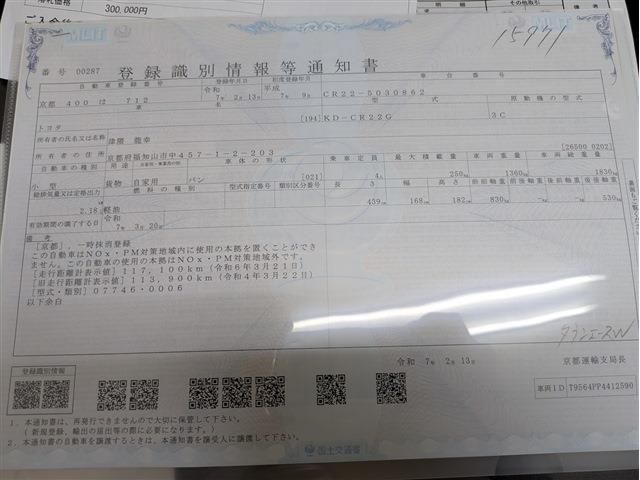 落札価格
300,000円
その他取引
備 考
MLIT
15771
番 号 00287
登録識別情報等通知書
自動車登録番号
登録年月日
初度登録年月
車 台 番 号
京都 400 は 712
令和
7年 2月 13日
平成
7年 9月
CR22-5030862
車 名
型 式
原動機の型式
トヨタ
[194]
KD-CR22G
3C
所有者の氏名又は名称
所有者の住所
京都府福知山市中457-1-2-203
[26500 0202]
自動車の種別
用途
車体の形状
乗車定員
最大積載量
車両重量
車両総重量
小型
貨物
自家用
バン
[021]
4人
250kg
1360kg
1830kg
総排気量又は定格出力
燃料の種類
型式指定番号
類別区分番号
長 さ
幅
高 さ
前前軸重
前後軸重
後前軸重
後後軸重
2.18
軽油
439cm
168cm
182cm
830kg
-kg
-kg
530kg
有効期間の満了する日
令和
7年 3月 20日
備 考
[京都],一時抹消登録
この自動車はNOx・PM対策地域内に使用の本拠を置くことができ
ません。この自動車の使用の本拠はNOx・PM対策地域外です。
[走行距離計表示値]117,100km(令和6年3月21日)
[旧走行距離計表示値]113,900km(令和4年3月22日)
[型式・類別]07746・0006
以下余白
タウンエースW
令和 7年 2月 13日
京都運輸支局長
登録識別情報
車両ID
T9564PP4412590
1.本通知書は、再発行できませんので大切に保管して下さい。
(新規登録、輸出の届出等の際に必要になります。)
2.本通知書の自動車を譲渡するときは、本通知書を譲受人に譲渡して下さい。
国土交通省